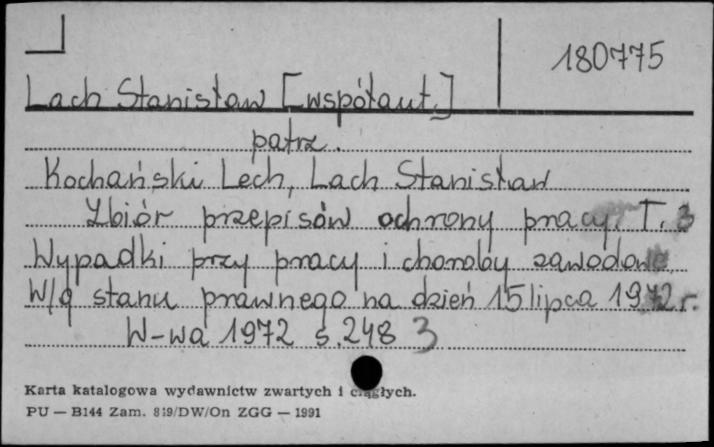 180775
Lach Stanisław [współaut.]
patrz.
Kochański Lech, Lach Stanisław
Zbiór przepisów ochrony pracy. T. 3
Wypadki przy pracy i choroby zawodowe
W/g stanu prawnego na dzień 15 lipca 1972 r.
W-wa 1972 s. 248 3
Karta katalogowa wydawnictw zwartych i ciągłych.
PU — B144 Zam. 819/DW/On ZGG — 1991